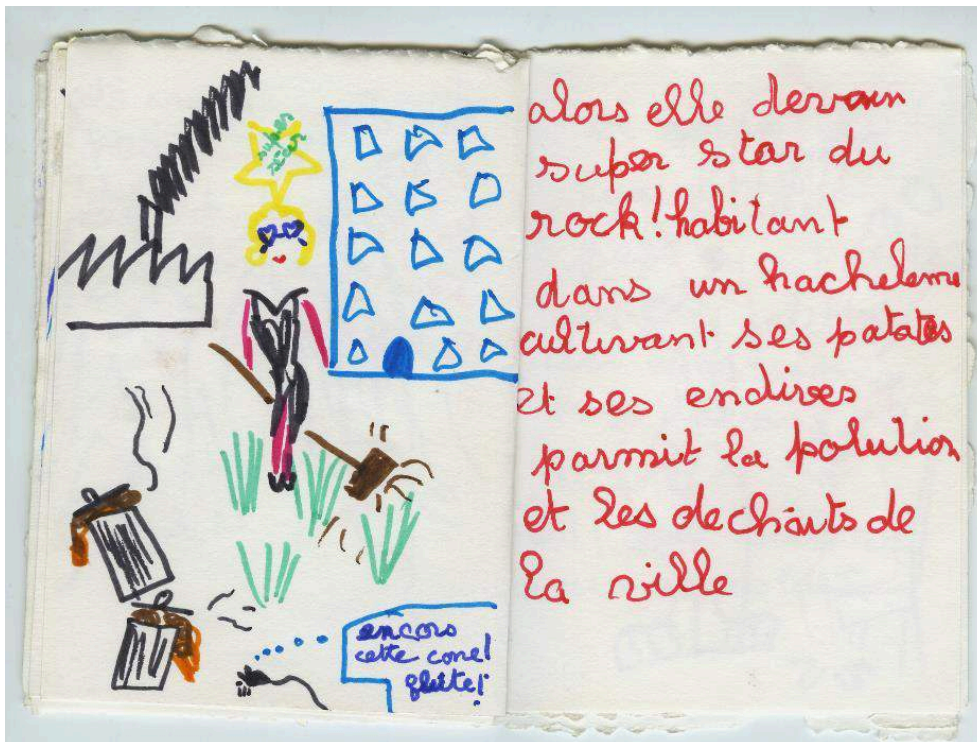 encors
cette cone!
alors elle devain
super star du
rock! habitant
dans un hacheleme
cultivant ses patates
et ses endives
parmit la polution
et les dechaits de
la ville